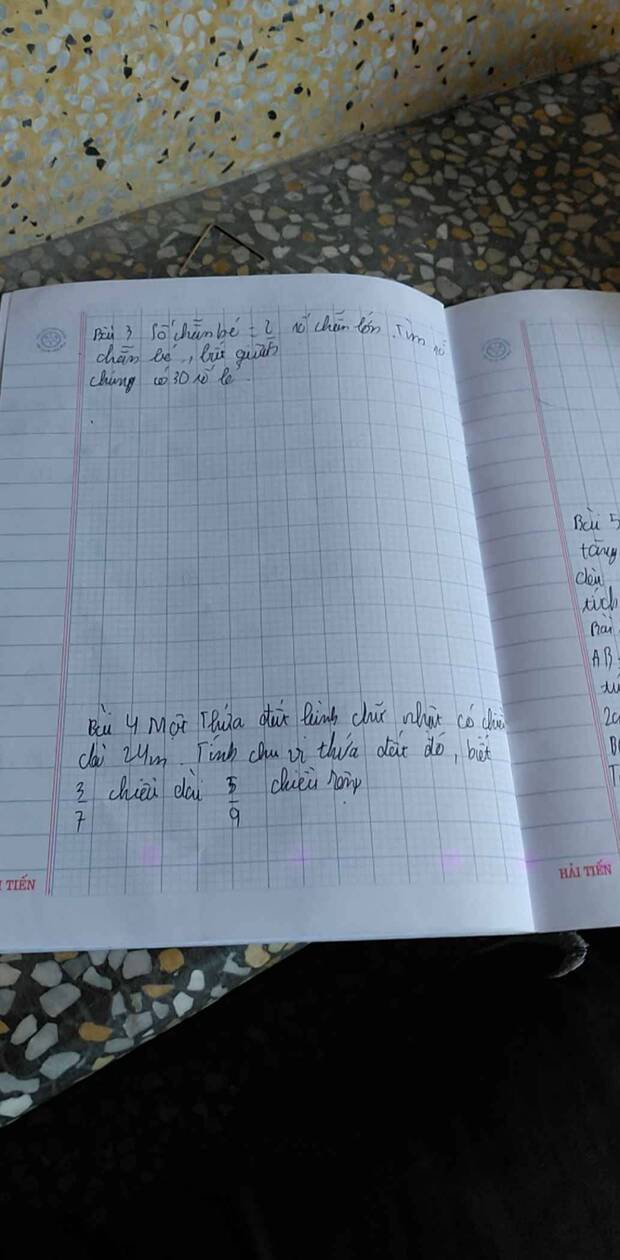 Bài 3 Số chẵn bé = 2 số chẵn lớn. Tìm số
chẵn bé, biết giữa
chúng có 30 số lẻ.
Bài 4 Một Thửa đất hình chữ nhật có chiều
dài 24m. Tính chu vi thửa đất đó, biết
3 chiều dài 5 chiều rộng
7 9
TIẾN
Bài 5
tăng
diện
tích
Bài
AB
HẢI TIẾN